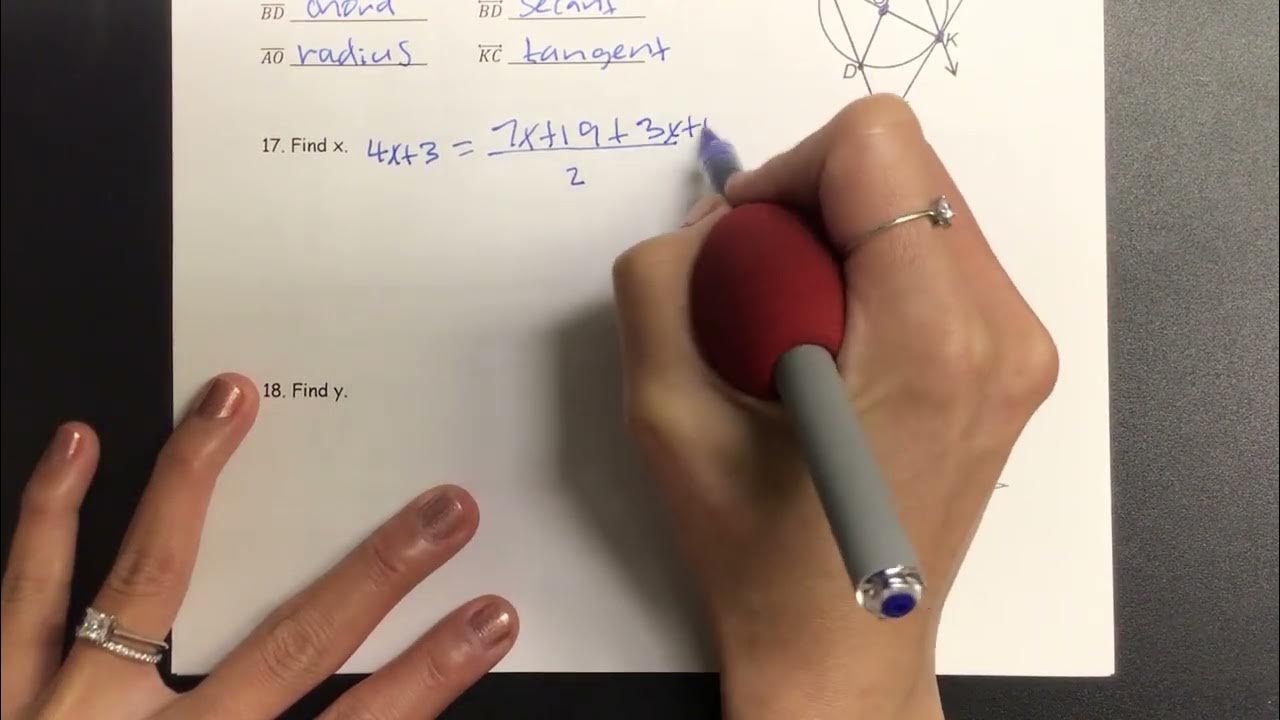 BD chord BD secant
AO radius KC tangent
D K
17. Find x. 4x+3 = 7x+19+3x+
2
18. Find y.